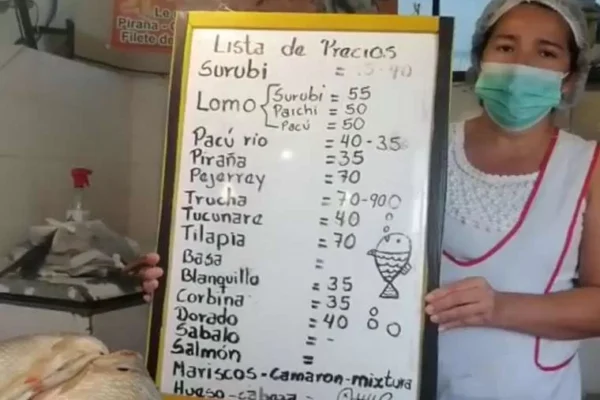 Lo
Piraña -
Filete de
Lista de Precios
Surubi = 35-40
Lomo { Surubi = 55
Paichi = 50
Pacú = 50
Pacú río = 40-35
Piraña = 35
Pejerrey = 70
Trucha = 70-90
Tucunare = 40
Tilapia = 70
Basa =
Blanquillo = 35
Corbina = 35
Dorado = 40
Sabalo = -
Salmón =
Mariscos-camaron-mixtura
Hueso-cabeza -